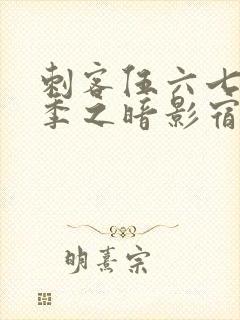 刺客伍六七
季之暗影宿
明熹宗